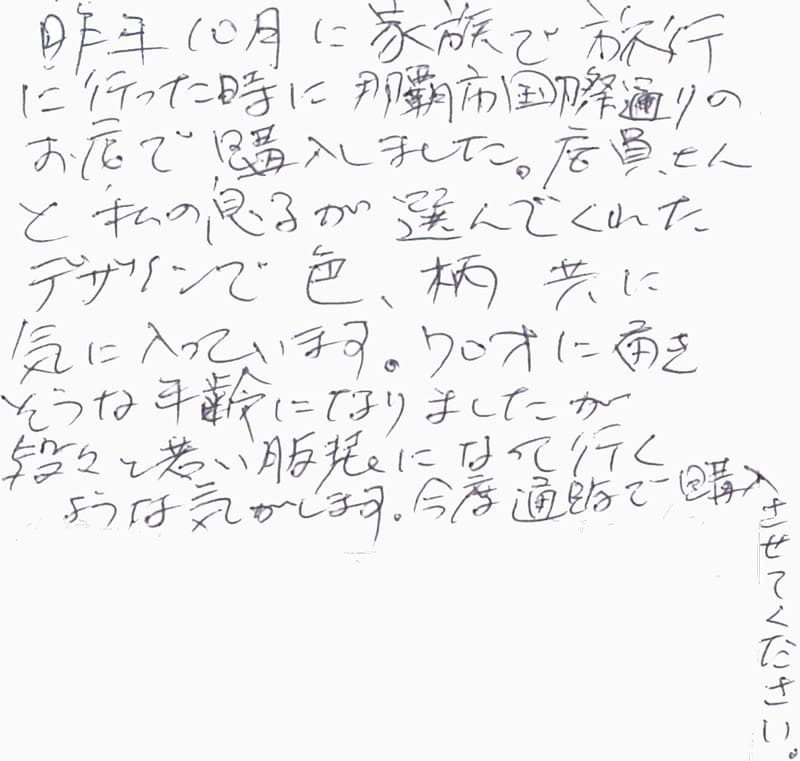 昨年10月に家族で旅行
に行った時に那覇市国際通りの
お店で購入しました。店員さん
と私の息子が選んでくれた
デザインで色、柄 共に
気に入っています。70才に届き
そうな年齢になりましたが
段々と若い服装になって行く
ような気がします。今度通販で購入
させてください。